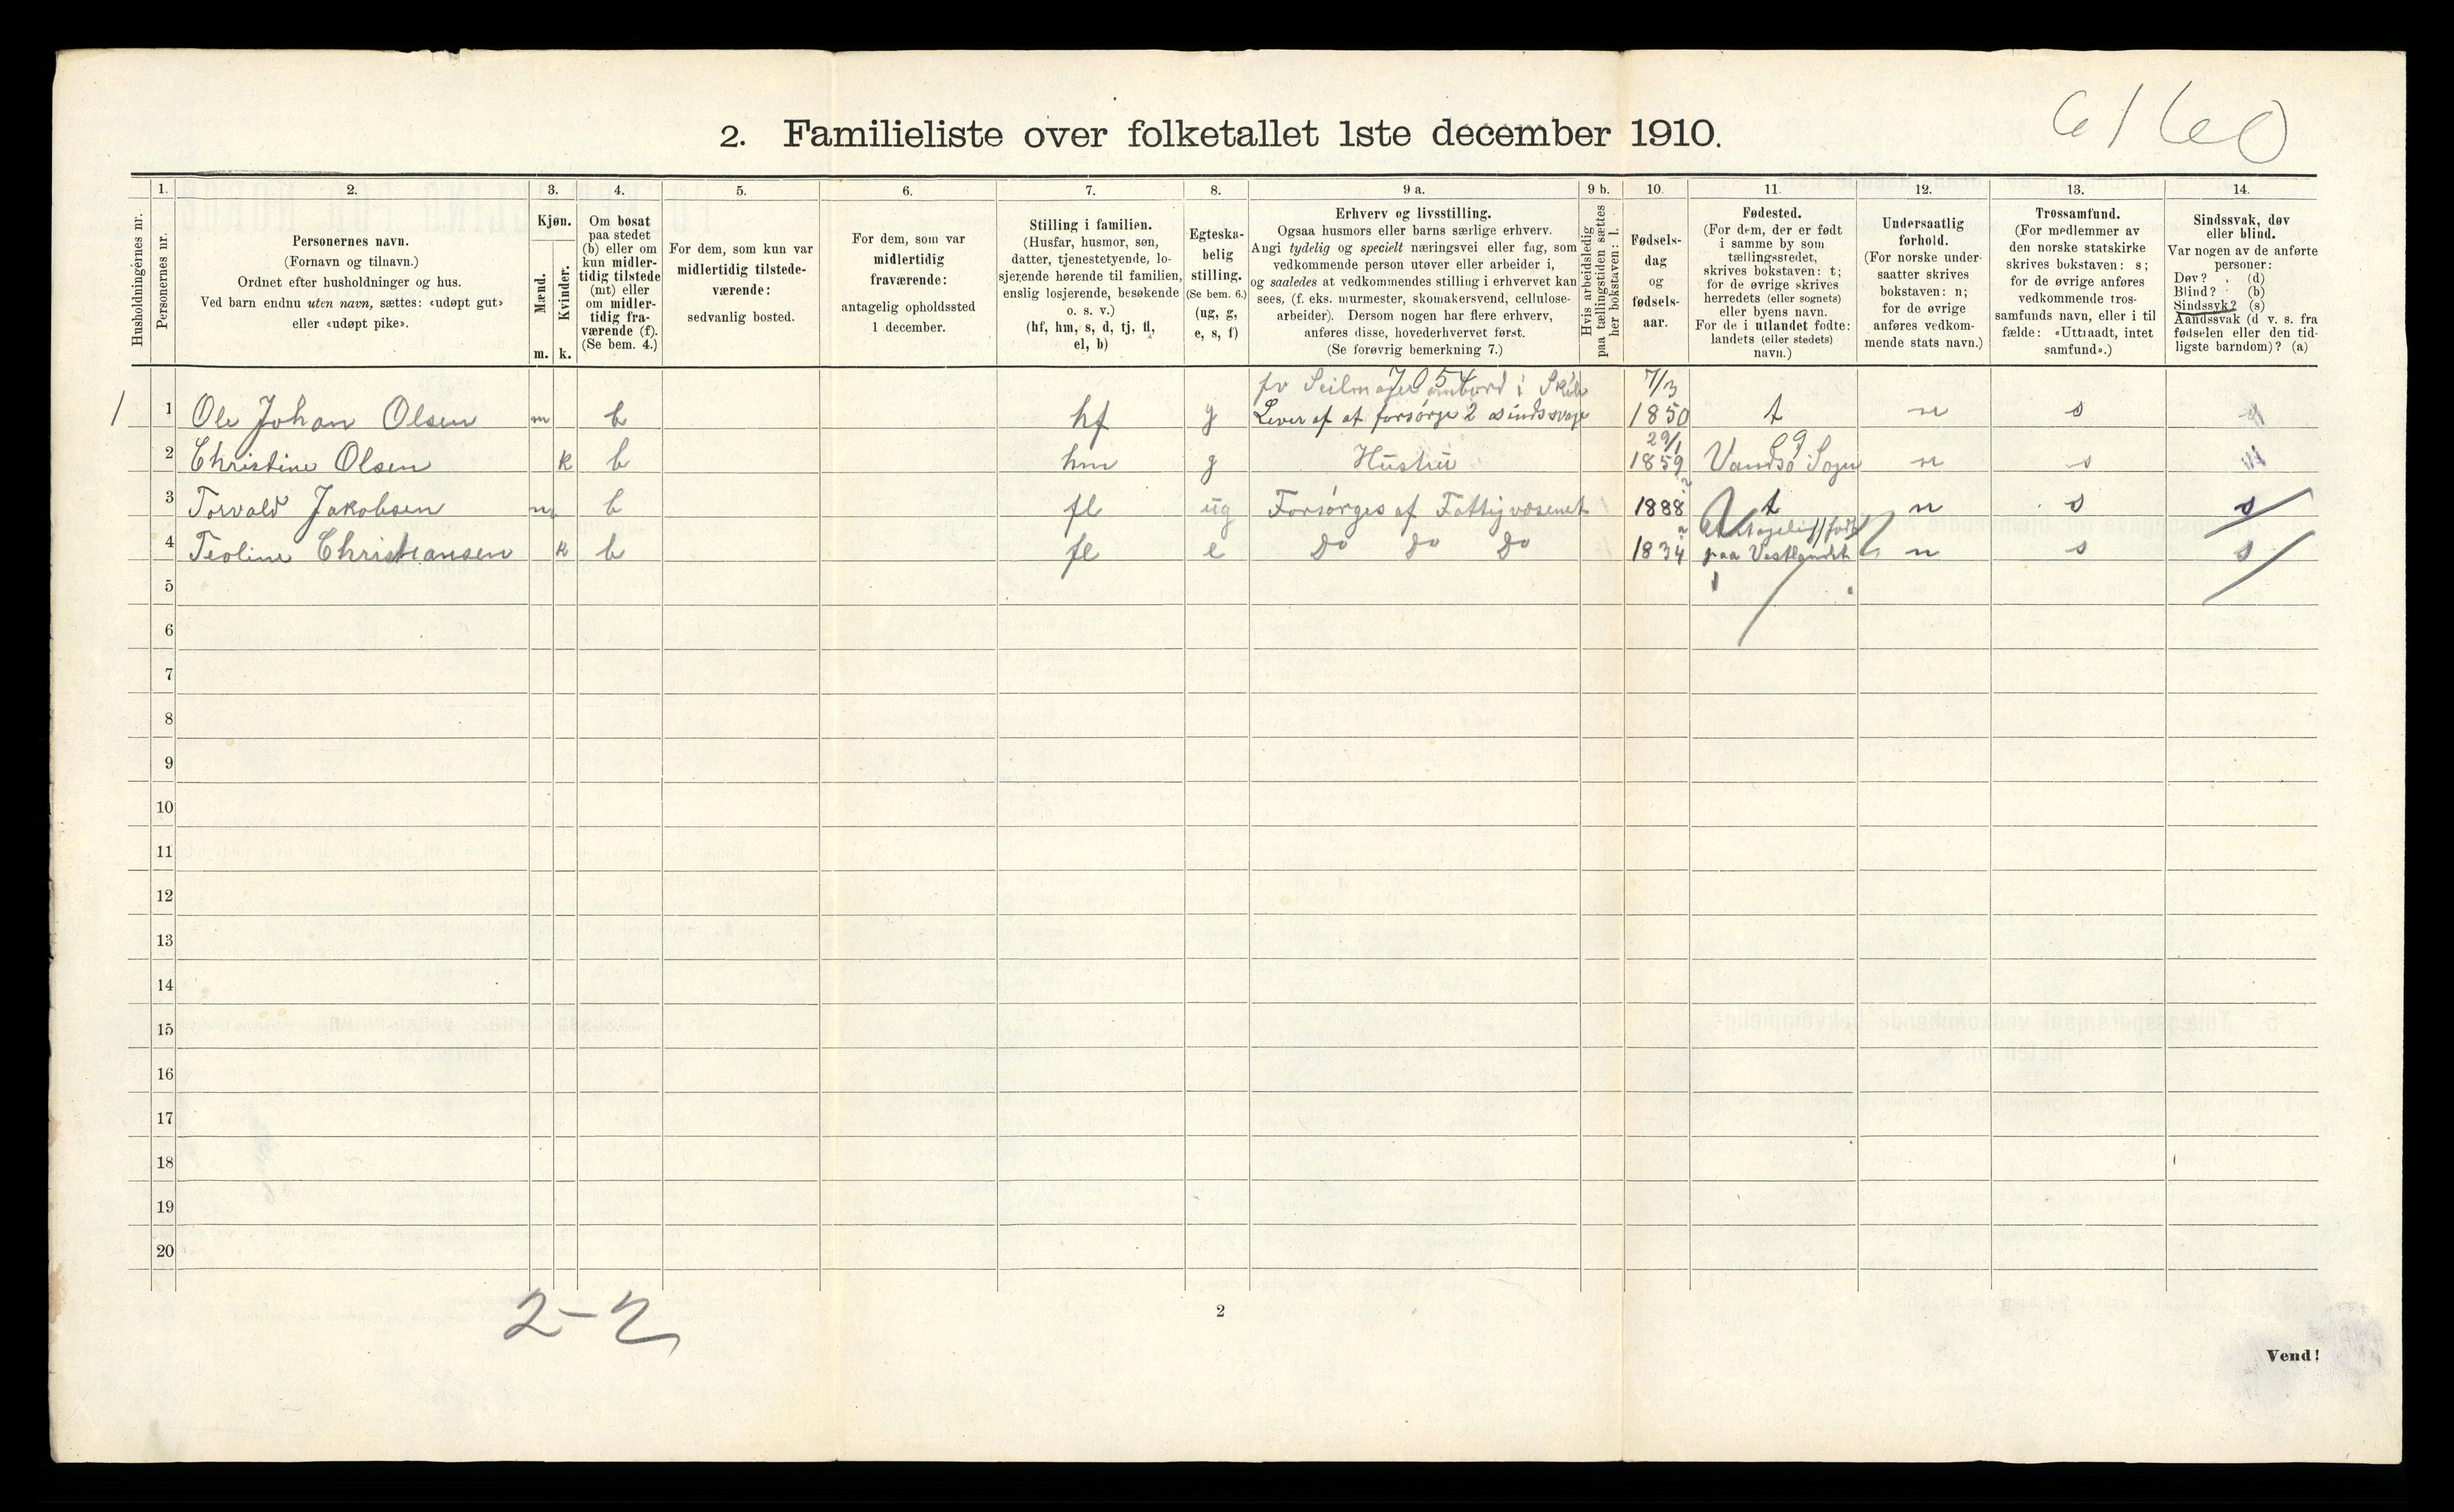 6160
2. Familieliste over folketallet 1ste december 1910.
Husholdningernes nr.
1.
Personernes nr.
2.
Personernes navn.
(Fornavn og tilnavn.)
Ordnet efter husholdninger og hus.
Ved barn endnu uten navn, sættes: «udøpt gut»
eller «udøpt pike».
3.
Kjøn.
Mænd.
Kvinder.
m. k.
4.
Om bosat
paa stedet
(b) eller om
kun midler-
tidig tilstede
(mt) eller
om midler-
tidig fra-
værende (f).
(Se bem. 4.)
5.
For dem, som kun var
midlertidig tilstede-
værende:
sedvanlig bosted.
6.
For dem, som var
midlertidig
fraværende:
antagelig opholdssted
1 december.
7.
Stilling i familien.
(Husfar, husmor, søn,
datter, tjenestetyende, lo-
sjerende hørende til familien,
enslig losjerende, besøkende
o. s. v.)
(hf, hm, s, d, tj, fl,
el, b)
8.
Egteska-
belig
stilling.
(Se bem. 6.)
(ug, g,
e, s, f)
9 a.
Erhverv og livsstilling.
Ogsaa husmors eller barns særlige erhverv.
Angi tydelig og specielt næringsvei eller fag, som
vedkommende person utøver eller arbeider i,
og saaledes at vedkommendes stilling i erhvervet kan
sees, (f. eks. murmester, skomakersvend, cellulose-
arbeider). Dersom nogen har flere erhverv,
anføres disse, hovederhvervet først.
(Se forøvrig bemerkning 7.)
9 b.
Hvis arbeidsledig
paa tællingstiden sættes
her bokstaven: l.
10.
Fødsels-
dag
og
fødsels-
aar.
11.
Fødested.
(For dem, der er født
i samme by som
tællingsstedet,
skrives bokstaven: t;
for de øvrige skrives
herredets (eller sognets)
eller byens navn.
For de i utlandet fødte:
landets (eller stedets)
navn.)
12.
Undersaatlig
forhold.
(For norske under-
saatter skrives
bokstaven: n;
for de øvrige
anføres vedkom-
mende stats navn.)
13.
Trossamfund.
(For medlemmer av
den norske statskirke
skrives bokstaven: s;
for de øvrige anføres
vedkommende tros-
samfunds navn, eller i til
fælde: «Uttraadt, intet
samfund».)
14.
Sindssvak, døv
eller blind.
Var nogen av de anførte
personer:
Døv? (d)
Blind? (b)
Sindssvk? (s)
Aandssvak (d v. s. fra
fødselen eller den tid-
ligste barndom)? (a)
fv Seilmager ombord i Skib 7054 7/3
1 1 Ole Johan Olsen m b hf g Lever af at forsørge 2 sindssvage 1850 t n s
29/1
2 Christine Olsen k b hm g Hustru 1859 Vandsø Sogn n s
3 Torvald Jakobsen m b fl ug Forsørges af Fattigvæsenet 1888 t n s s
Antagelig født
4 Teoline Christiansen k b fl e Do Do Do 1834 paa Vestlandet n s s
5
6
7
8
9
10
11
12
13
14
15
16
17
18
19
20
2-2
2
Vend!